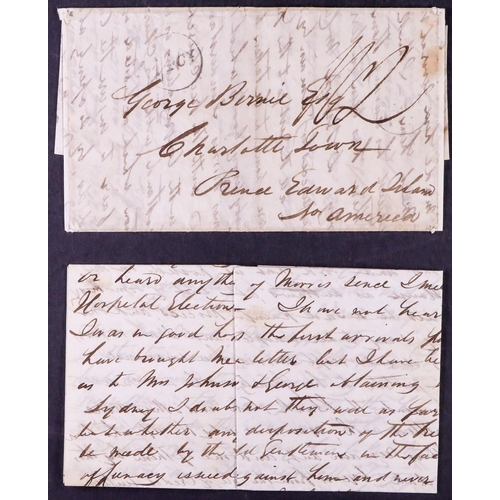 George Birnie Esq
Charlotte Town
Prince Edward Islan
No America
or heard anythg of Morris since I
Hospital Election I have not hear
I was in good ho the first arrivals
have brought me letter but I have
as to Mrs Johnson & George obtaining
Sydney I doubt not they will as
but whether any disposition of the
be made by the Gentlemen in the
of Lunacy issued against him and never